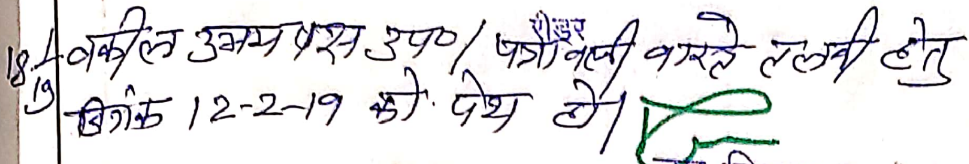 18/1/19 वकील उभय पक्ष उप0/ पत्रावली वास्ते तलवी हेतु
दिनांक 12-2-19 को पेश हो।